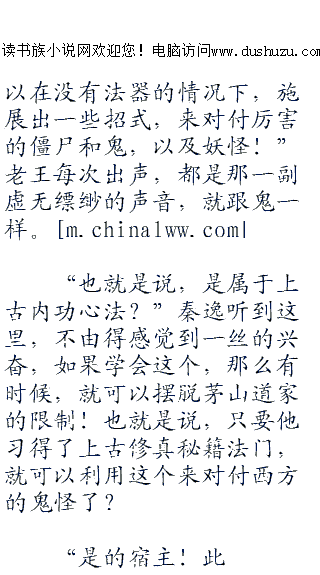 读书族小说网欢迎您！电脑访问www.dushuzu.com
以在没有法器的情况下，施
展出一些招式，来对付厉害
的僵尸和鬼，以及妖怪！”
老王每次出声，都是那一副
虚无缥缈的声音，就跟鬼一
样。[m.chinalww.com|
“也就是说，是属于上
古内功心法？”秦逸听到这
里，不由得感觉到一丝的兴
奋，如果学会这个，那么有
时候，就可以摆脱茅山道家
的限制！也就是说，只要他
习得了上古修真秘籍法门，
就可以利用这个来对付西方
的鬼怪了？
“是的宿主！此